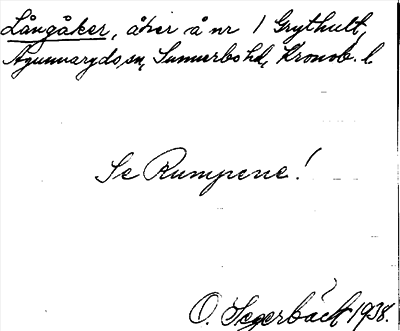 Långåker, åker å nr 1 Grythult,
Agunnaryds sn, Sunnerbo hd, Kronob. l
Se Rumpene!
O. Segerbäck 1938.